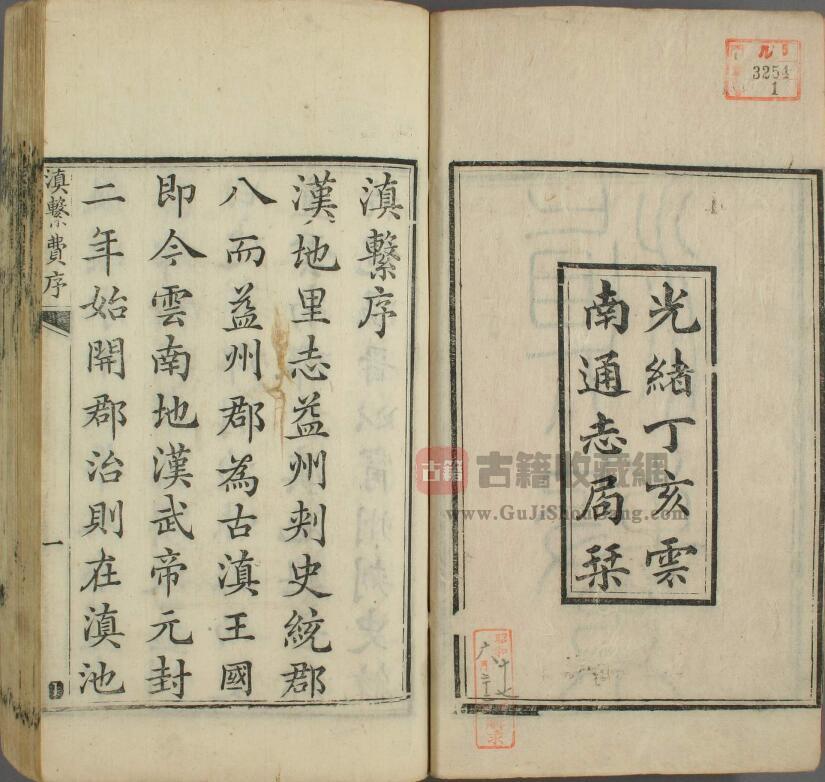 光緒丁亥雲
南通志局栞
滇繫序
漢地里志益州刾史統郡
八而益州郡為古滇王國
即今雲南地漢武帝元封
二年始開郡治則在滇池
滇繫費序
一
3254
1
昭和
古籍
古籍收藏網
www.GuJiShouCang.com